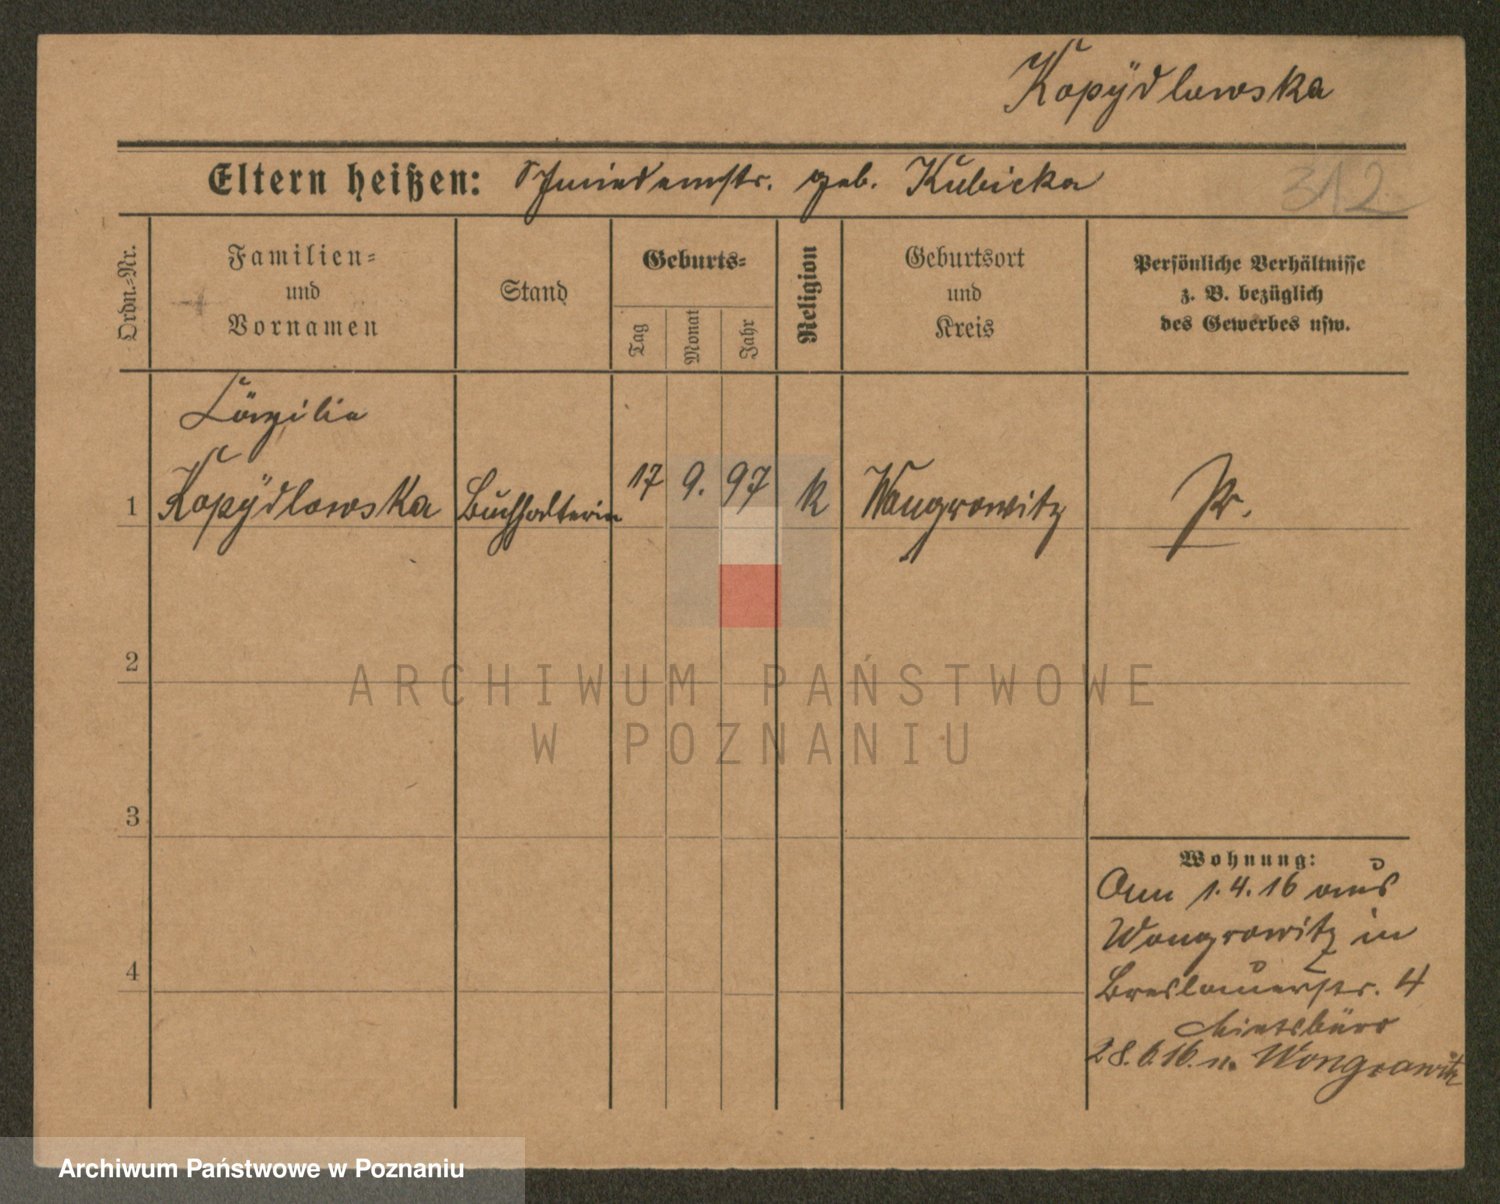 Kopÿdlowska
Eltern heißen: Schmiedemstr. geb. Kubicka
312
Ordn.-Nr.
Familien-
und
Vornamen
Stand
Geburts-
Tag
Monat
Jahr
Religion
Geburtsort
und
Kreis
Persönliche Verhältnisse
z. B. bezüglich
des Gewerbes usw.
1
Cäzilia
Kopÿdlowska
Buchhalterin
17
9.
97
k
Wongrowitz
Pr.
2
ARCHIWUM PAŃSTWOWE
W POZNANIU
3
4
Wohnung:
Am 1.4.16 aus
Wongrowitz in
Breslauerstr. 4
Mietsbüro
28.6.16. n. Wongrowitz
Archiwum Państwowe w Poznaniu